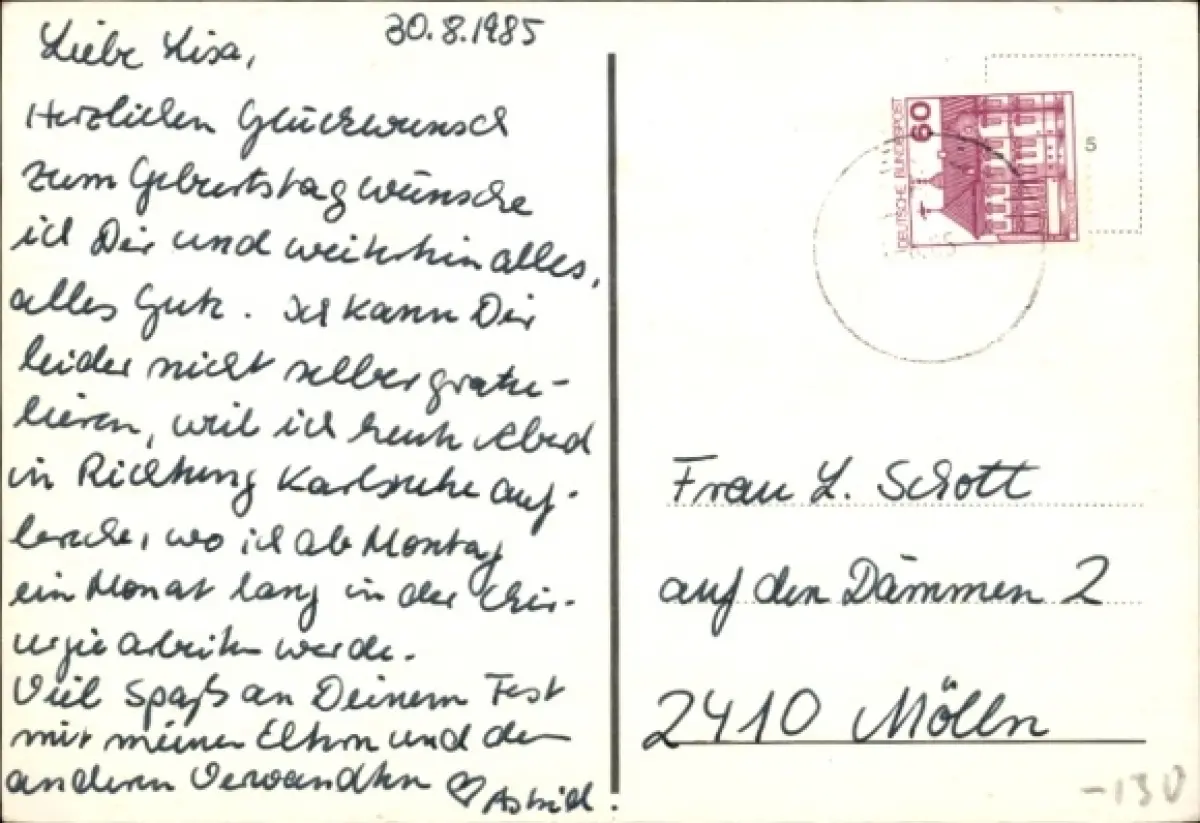 30.8.1985
Liebe Lisa,
Herzlichen Glückwunsch
zum Geburtstag wünsche
ich Dir und weiterhin alles,
alles Gute. Ich kann Dir
leider nicht selber gratu-
lieren, weil ich heute Abend
in Richtung Karlsruhe auf-
breche, wo ich ab Montag
ein Monat lang in der Chir-
urgie arbeiten werde.
Viel Spaß an Deinem Fest
mit meinen Eltern und den
anderen Verwandten ♡ Astrid.
DEUTSCHE BUNDESPOST
60
5
Frau L. Schott
auf den Dämmen 2
2410 Mölln
-130